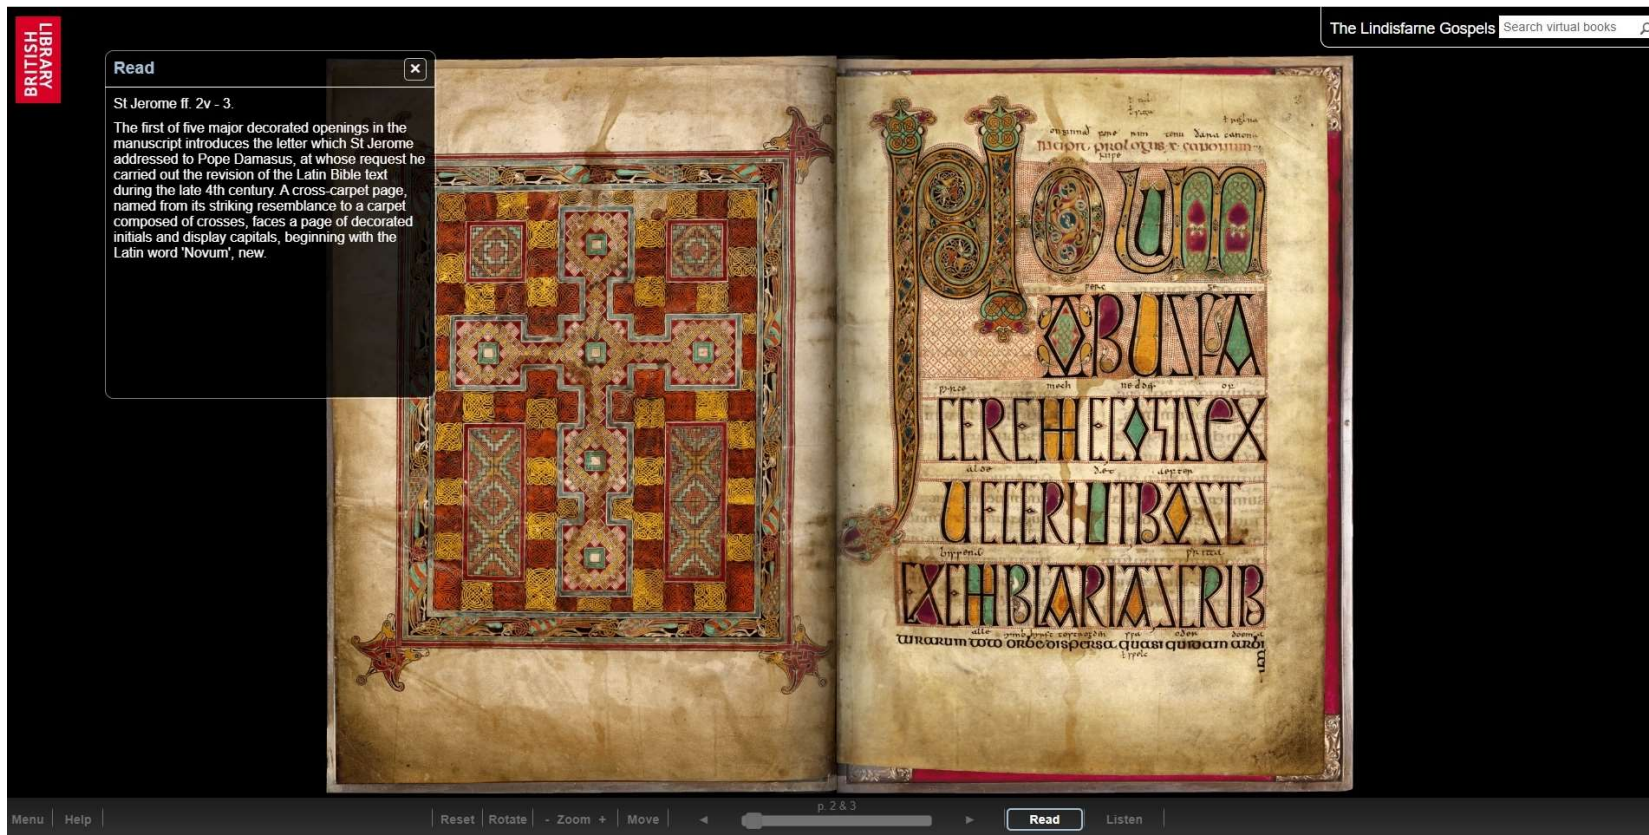 BRITISH
LIBRARY
The Lindisfarne Gospels
Search virtual books
Read
St Jerome ff. 2v - 3.
The first of five major decorated openings in the
manuscript introduces the letter which St Jerome
addressed to Pope Damasus, at whose request he
carried out the revision of the Latin Bible text
during the late 4th century. A cross-carpet page,
named from its striking resemblance to a carpet
composed of crosses, faces a page of decorated
initials and display capitals, beginning with the
Latin word 'Novum', new.
prologus
NOUM
OPUS FA
CERE ME COGIS EX
UETERI UT POST
EXEMPLARIA SCRIB
turarum toto orbe dispersa quasi quidam arbi
p. 2 & 3
Menu
Help
Reset
Rotate
- Zoom +
Move
Read
Listen